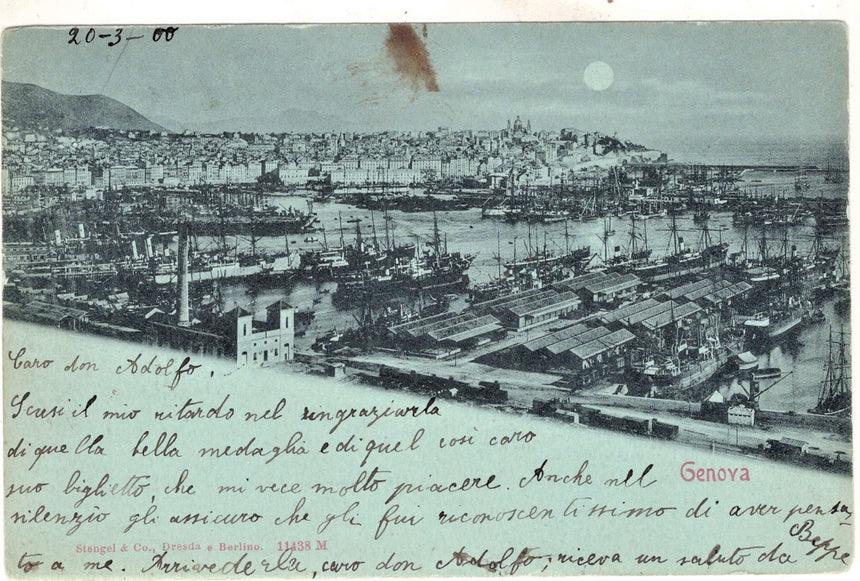 20-3-00
Caro don Adolfo.
Scusi il mio ritardo nel ringraziarla
di quella bella medaglia e di quel così caro
suo biglietto, che mi fece molto piacere. Anche nel
Genova
silenzio gli assicuro che gli fui riconoscentissimo di aver pensa-
to a me. Arrivederla, caro don Adolfo, riceva un saluto da
Beppe
Stengel & Co., Dresda e Berlino. 11438 M